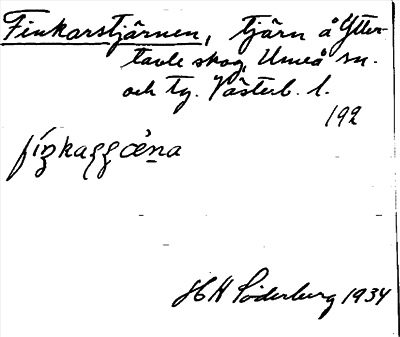 Finkarstjärnen, tjärn å Ytter-
tavle skog, Umeå sn.
och tg. Västerb. l.
192
H H Söderberg 1934